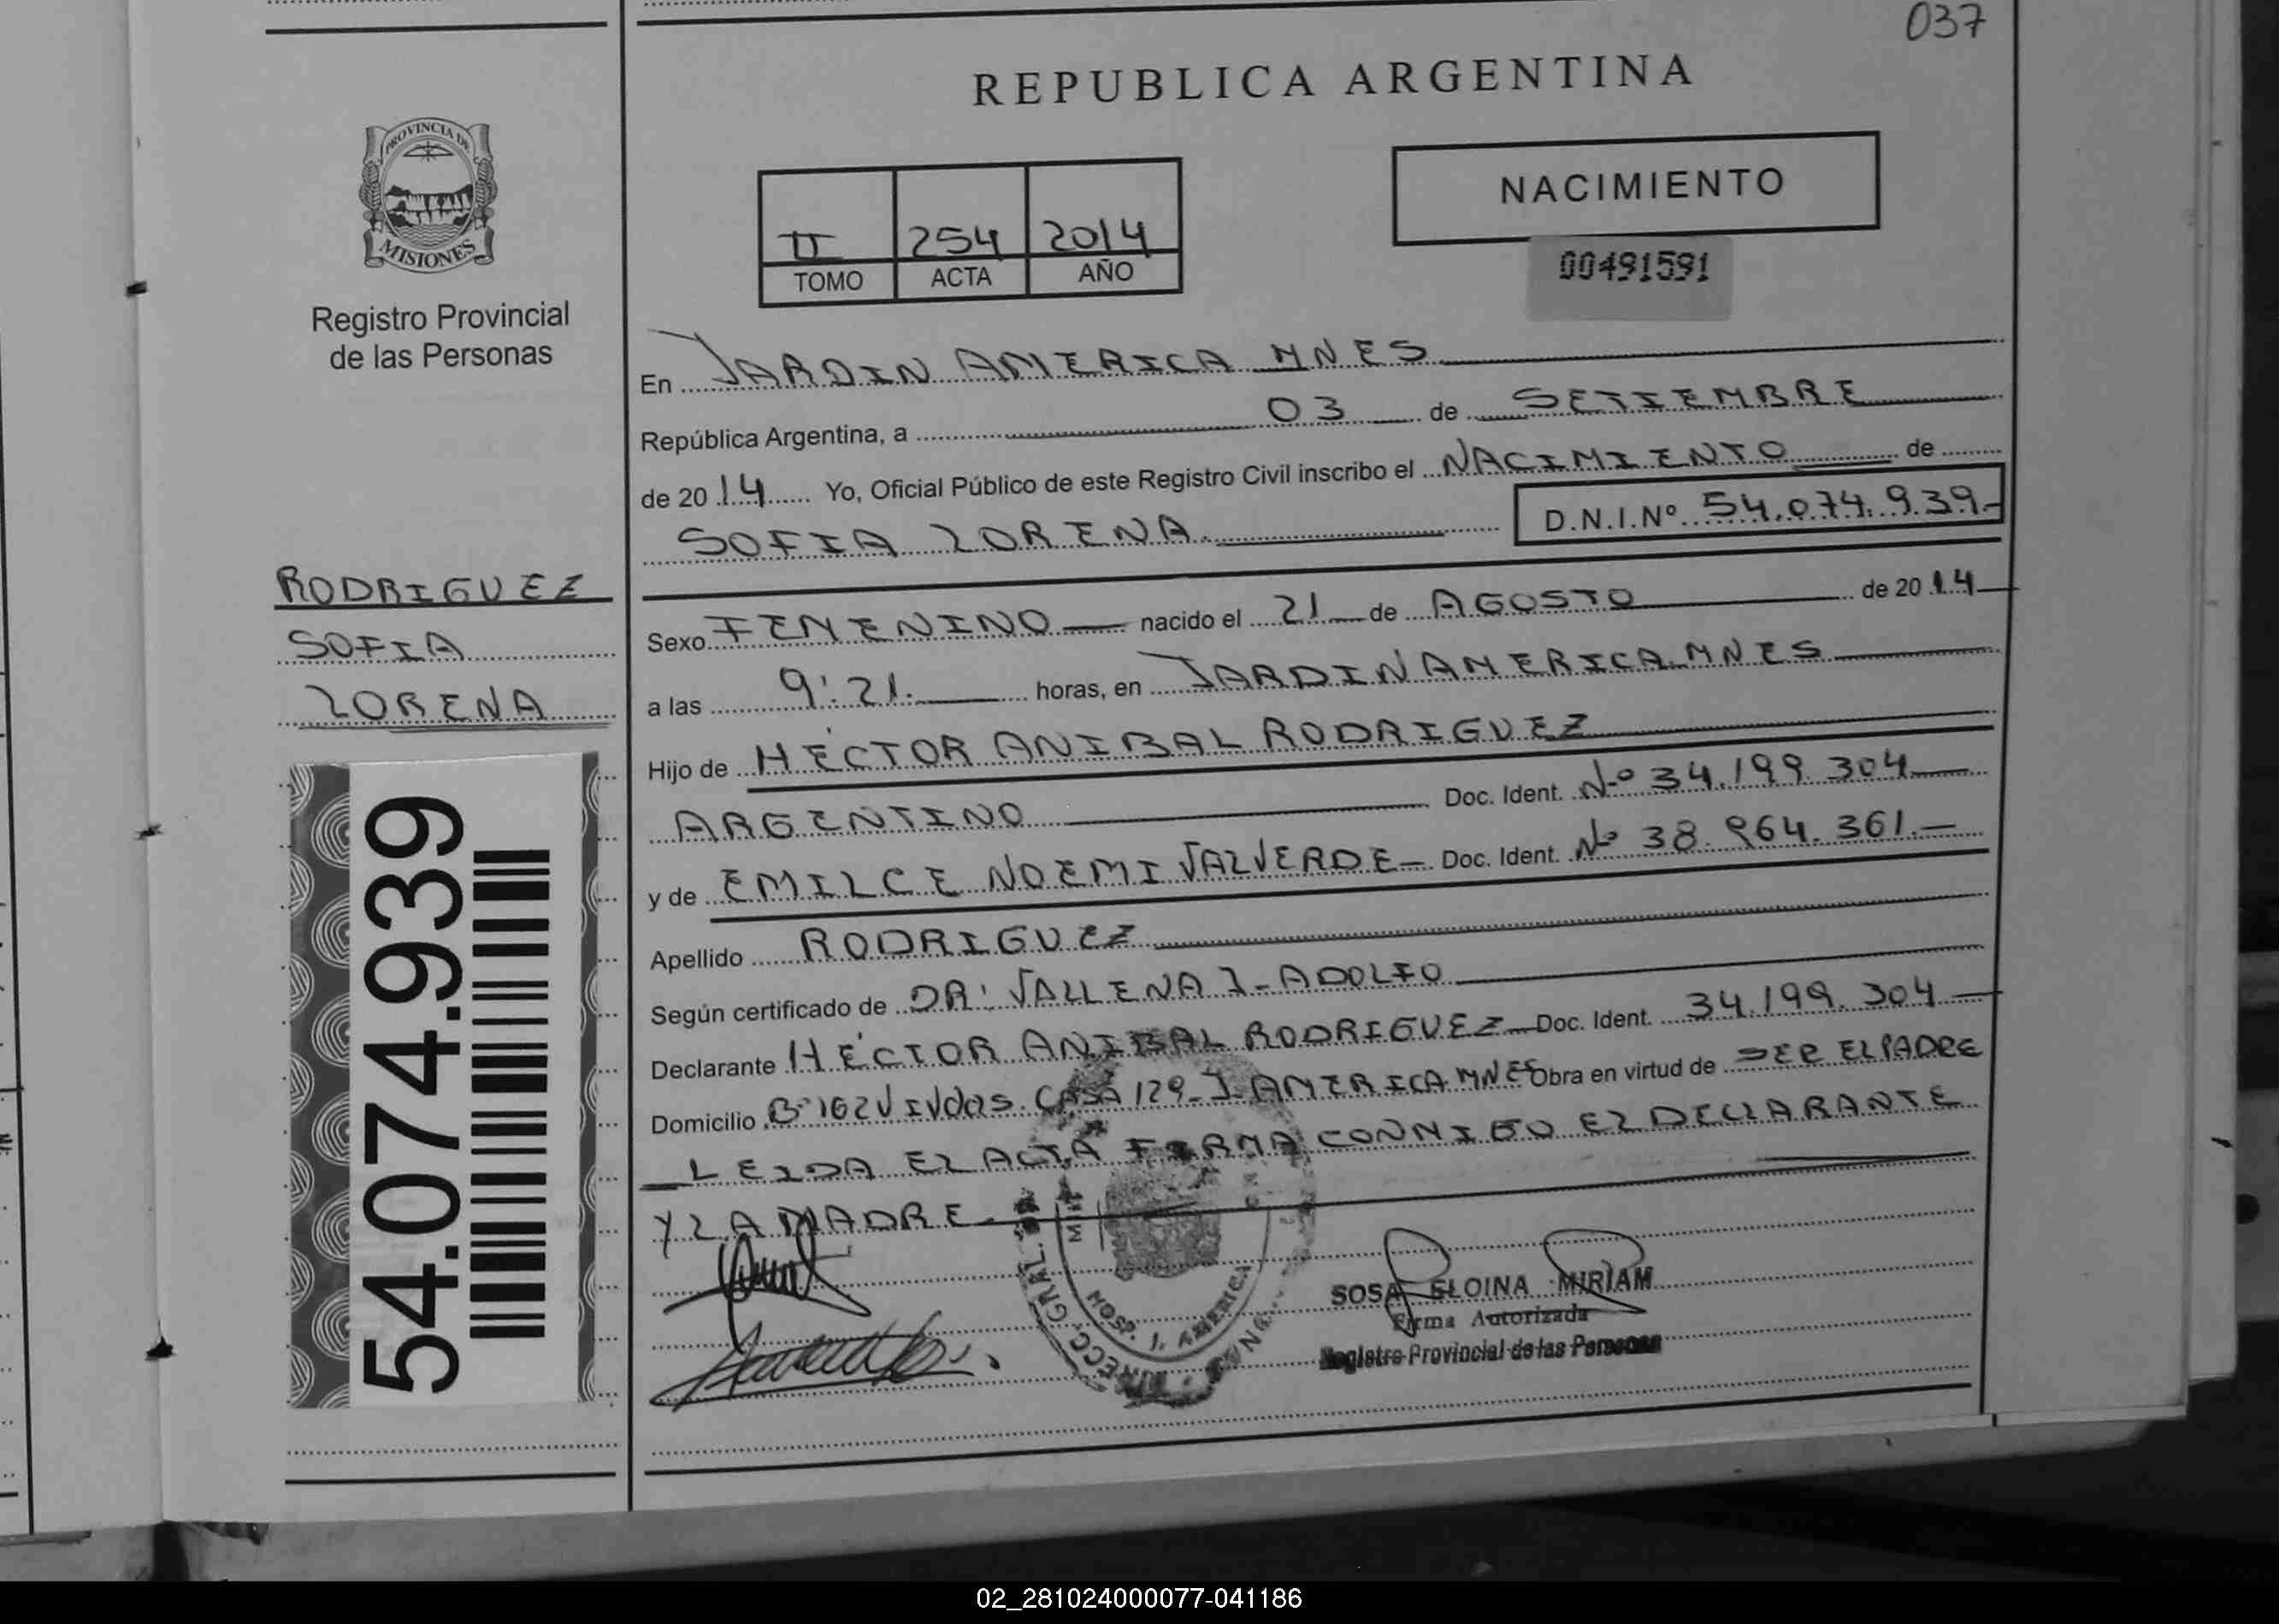 037
REPUBLICA ARGENTINA
PROVINCIA DE
MISIONES
Registro Provincial
de las Personas
II 254 2014
TOMO ACTA AÑO
NACIMIENTO
00491591
En JARDIN AMERICA MNES
República Argentina, a 03 de SETIEMBRE
de 2014 Yo, Oficial Público de este Registro Civil inscribo el NACIMIENTO de
SOFIA LORENA. D.N.I.Nº 54.074.939-
RODRIGUEZ
SOFIA
LORENA
54.074.939
Sexo FEMENINO nacido el 21 de AGOSTO de 2014
a las 9:21. horas, en JARDIN AMERICA MNES
Hijo de HECTOR ANIBAL RODRIGUEZ
ARGENTINO Doc. Ident. Nº 34.199.304
y de EMILCE NOEMI VALVERDE Doc. Ident. Nº 38.964.361.-
Apellido RODRIGUEZ
Según certificado de DR: VALLENA J- ADOLFO
Declarante HECTOR ANIBAL RODRIGUEZ Doc. Ident. 34.199.304
Domicilio Bº 162 VIVdas CASA 129-J-AMERICA MNES Obra en virtud de SER EL PADRE
LEIDA EL ACTA FIRMA CONMIGO EL DECLARANTE
Y LA MADRE
HOSP. J. AMERICA
SOSA ELOINA MIRIAM
Firma Autorizada
Registro Provincial de las Personas
02_281024000077-041186